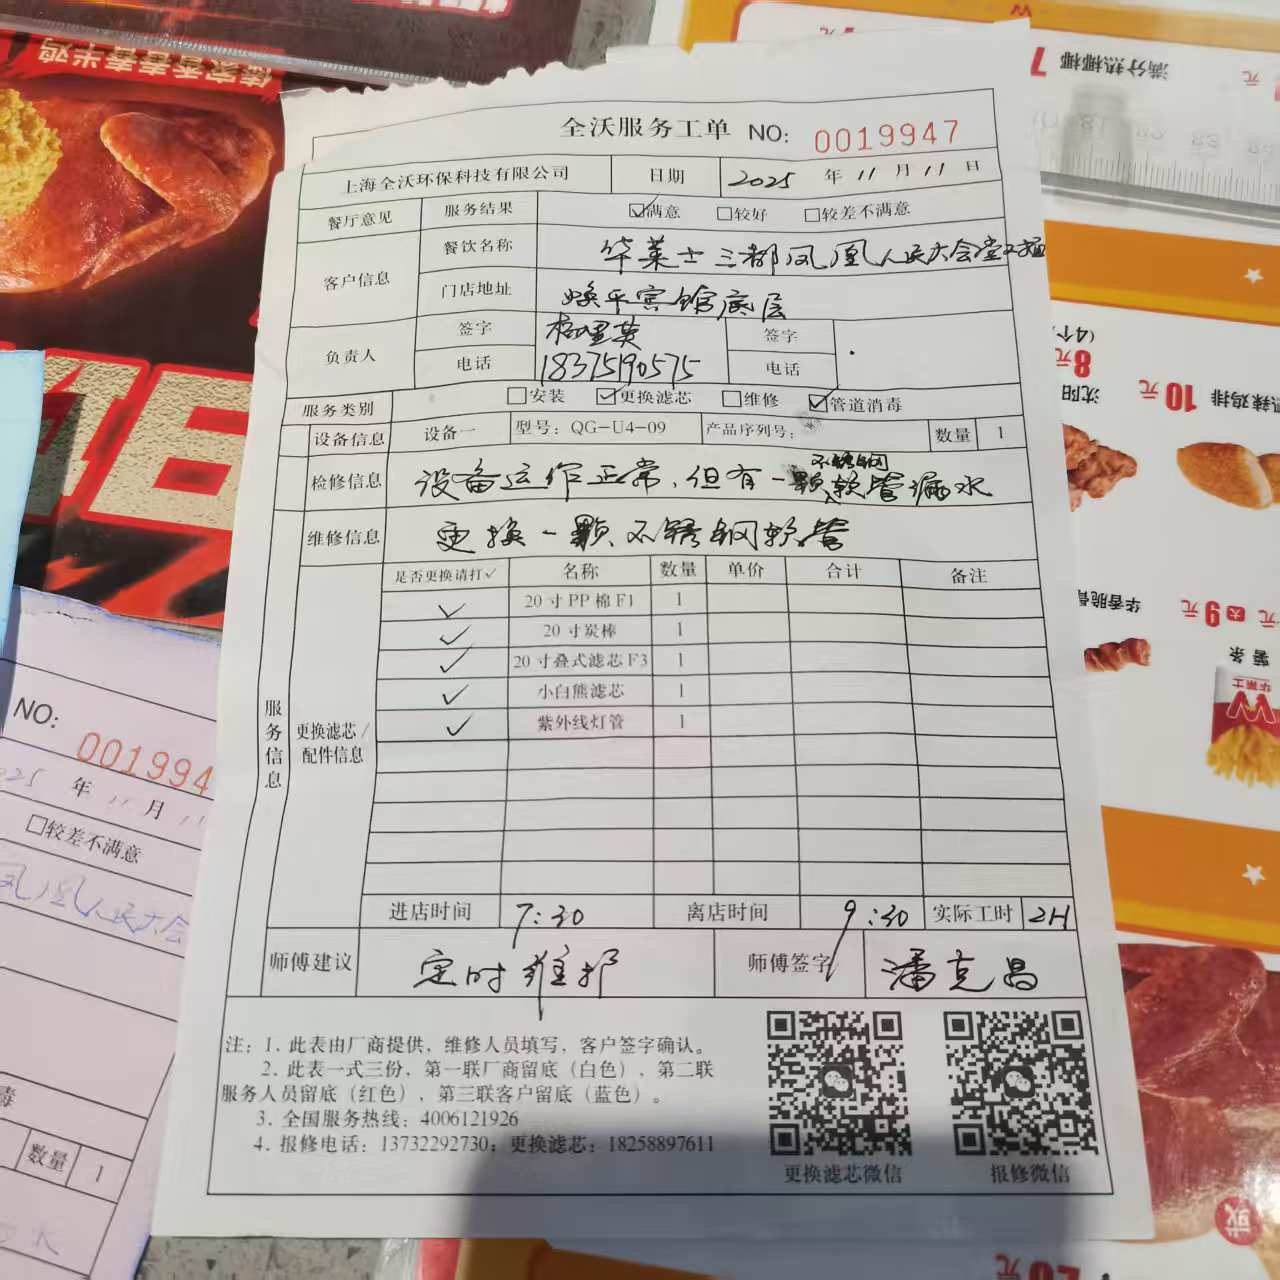 全沃服务工单 NO: 0019947
上海全沃环保科技有限公司 日期 2025 年 11 月 11 日
餐厅意见 服务结果 ☑满意 □较好 □较差不满意
客户信息 餐饮名称 华莱士三都凤凰人民大会堂
门店地址 焕平宾馆底层
负责人 签字 签字
电话 18375190575 电话
服务类别 □安装 ☑更换滤芯 □维修 ☑管道消毒
设备信息 设备一 型号: QG-U4-09 产品序列号: 数量 1
检修信息 设备运作正常,但有一颗不锈钢软管漏水
维修信息 更换一颗不锈钢软管
服务信息
更换滤芯/配件信息
是否更换请打✓ 名称 数量 单价 合计 备注
✓ 20寸PP棉F1 1
✓ 20寸炭棒 1
✓ 20寸叠式滤芯F3 1
✓ 小白熊滤芯 1
✓ 紫外线灯管 1
进店时间 7:30 离店时间 9:30 实际工时 2H
师傅建议 定时维护 师傅签字 潘克昌
注: 1. 此表由厂商提供,维修人员填写,客户签字确认。
2. 此表一式三份,第一联厂商留底(白色),第二联
服务人员留底(红色),第三联客户留底(蓝色)。
3. 全国服务热线: 4006121926
4. 报修电话: 13732292730; 更换滤芯: 18258897611
更换滤芯微信 报修微信
NO: 001994
025 年 11 月 11
□较差不满意
凤凰人民大会
毒
数量 1
水
满分热椰椰 7元
8元
(4个
沈阳
10元
辣鸡排
华香脆骨
9元
薯条
华莱士
或
香半鸡